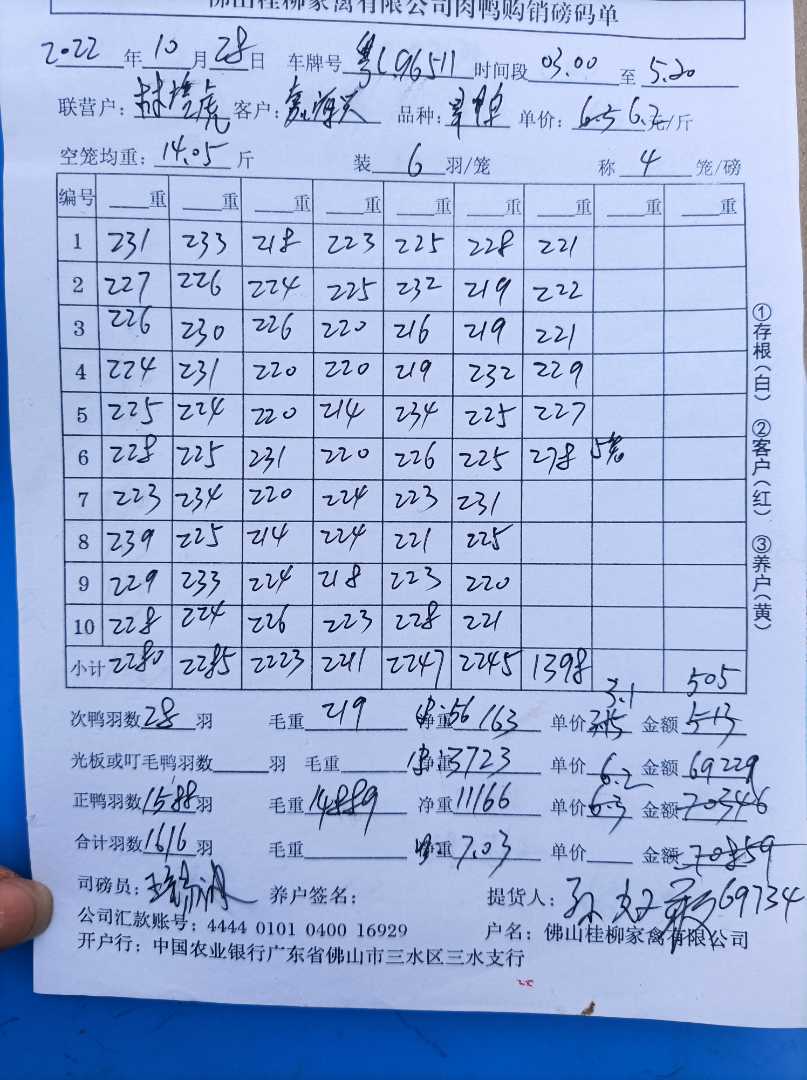 佛山桂柳家禽有限公司肉鸭购销磅码单
2022 年 10 月 28 日 车牌号 粤L96511 时间段 03.00 至 5.20
联营户: 林 虎 客户: 品种: 单价: 6.3 6.2 元/斤
空笼均重: 14.05 斤 装 6 羽/笼 称 4 笼/磅
编号 重 重 重 重 重 重 重 重 重
1 231 233 218 223 225 228 221
2 227 226 224 225 232 219 222
3 226 230 226 220 216 219 221
4 224 231 220 220 219 232 229
5 225 224 220 214 234 225 227
6 228 225 231 220 226 225 278 5笼
7 223 234 220 224 223 231
8 239 225 214 224 221 225
9 229 233 224 218 223 220
10 228 224 226 223 228 221
小计 2280 2285 2223 2211 2247 2245 1398
3.1 505
次鸭羽数 28 羽 毛重 219 净重 56 163 单价 3.15 金额 513
光板或叮毛鸭羽数 羽 毛重 净重 3723 单价 6.2 金额 69229
正鸭羽数 1588 羽 毛重 14889 净重 11166 单价 6.3 金额 70346
合计羽数 1616 羽 毛重 净重 7.03 单价 金额 70859
司磅员: 养户签名: 提货人: 孙 69734
公司汇款账号: 4444 0101 0400 16929 户名: 佛山桂柳家禽有限公司
开户行: 中国农业银行广东省佛山市三水区三水支行
①存根(白) ②客户(红) ③养户(黄)